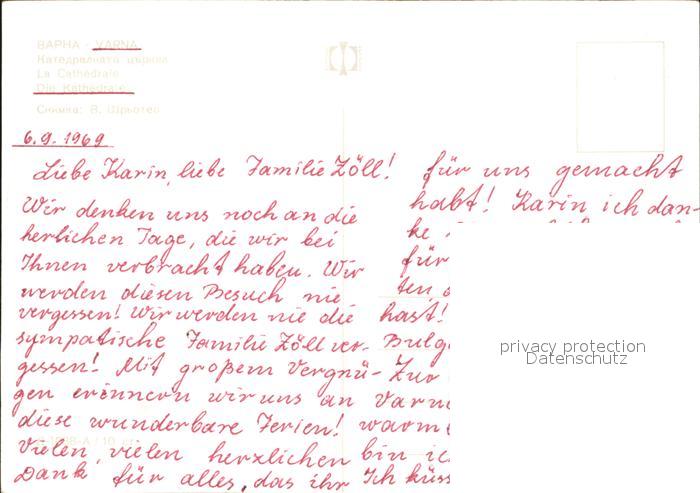 ВАРНА - VARNA
Катедралната църква
La Cathédrale
Die Kathedrale
Снимка:
6.9.1969
Liebe Karin, liebe Familie Zöll!
Wir denken uns noch an die
herlichen Tage, die wir bei
Ihnen verbracht haben. Wir
werden diesen Besuch nie
vergessen! Wir werden nie die
sympatische Familie Zöll ver-
gessen! Mit großem Vergnü-
gen erinnern wir uns an
diese wunderbare Ferien!
Vielen, vielen herzlichen
Dank für alles, das ihr
für uns gemacht
habt! Karin ich dan-
ke
für
ten,
hast!
Bulg
Zur
Varn
warm
bin ic
Ich küss
privacy protection
Datenschutz